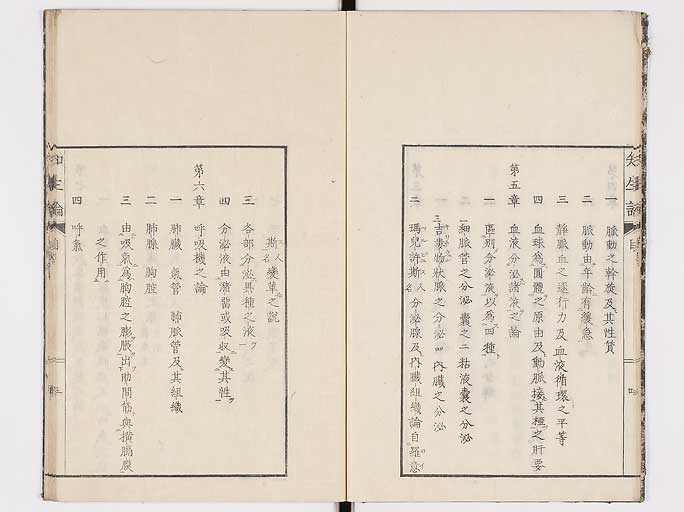 知生論
目
一 脈動之幹旋及其性質
二 脈動由年齡有緩急
三 靜脈血之逐行力及血液循環之平等
四 血球爲圓體之原由及動脈接其種之肝要
第五章
血液分泌諸液之論
一 區別分泌液以爲四種
一細脈管之分泌 二粘液囊之分泌
三吉畢物狀脈之分泌 四內臟之分泌
二 瑪兒許斯人名分泌腺及內臟組織論自羅意
斯人名變革之說
三 各部分泌異種之液
四 分泌液由瀦畱或吸收變其性
第六章
呼吸機之論
一 肺臟 氣管 肺脈管及其組織
二 肺腺 胸腔
三 由吸氣爲胸腔之膨脹出肋間筋與橫膈膜
之作用
四 呼氣
知生論